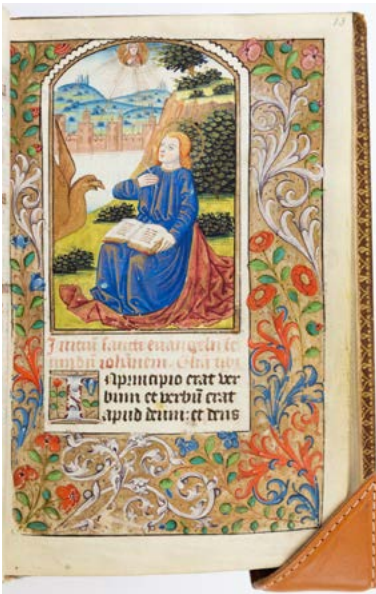 13
Initium sancti evangelii se
cundum iohannem. Gloria tibi
In principio erat ver
bum et verbum erat
apud deum: et deus